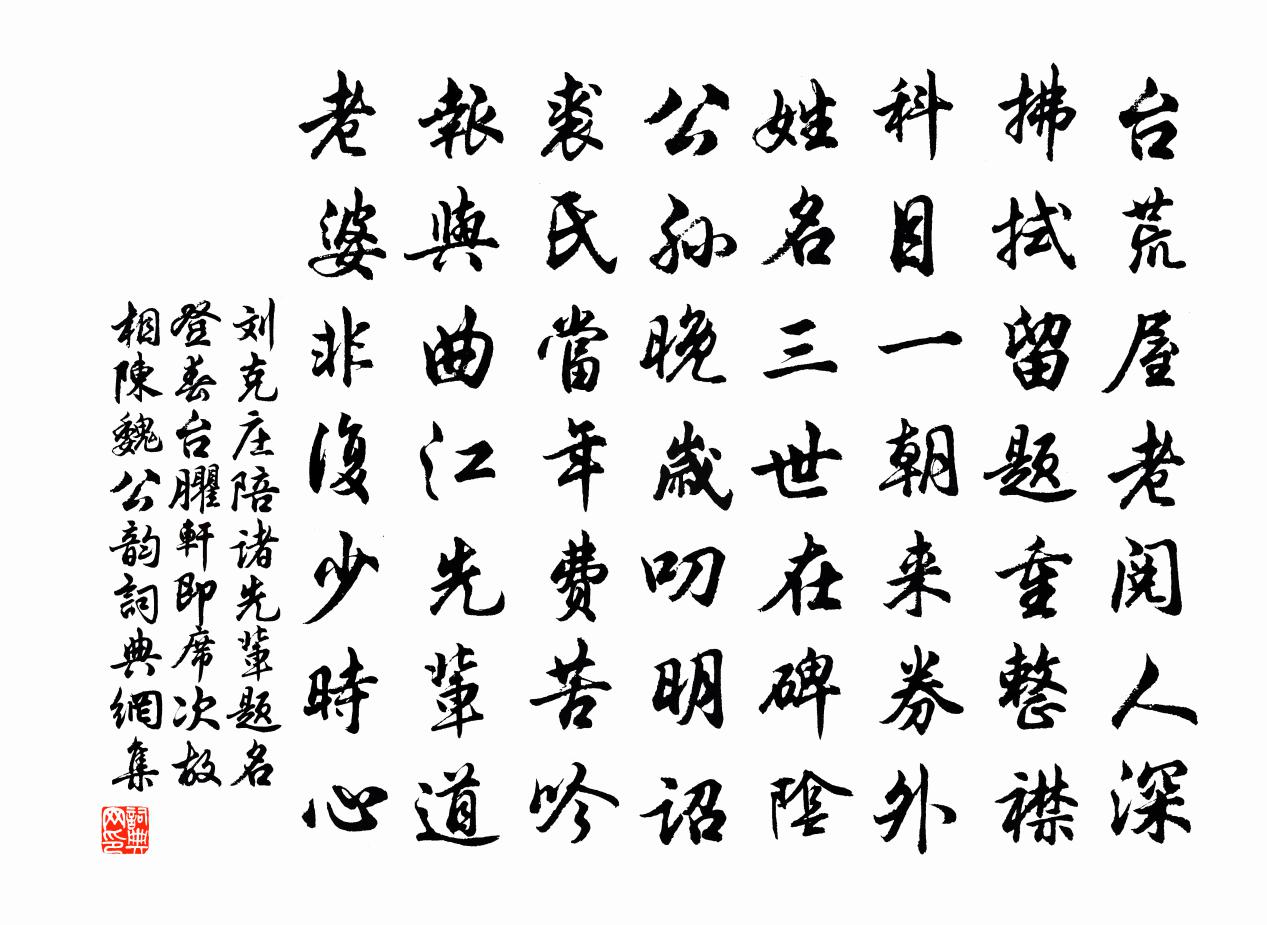 台荒屋老阅人深
拂拭留题重整襟
科目一朝来券外
姓名三世在碑陰
公孙晚歲叨明詔
裘氏當年費苦吟
報與曲江先輩道
老婆非復少時心
刘克庄陪诸先輩题名
登春台臞軒即席次故
相陳魏公韵詞典網集
詞典网印